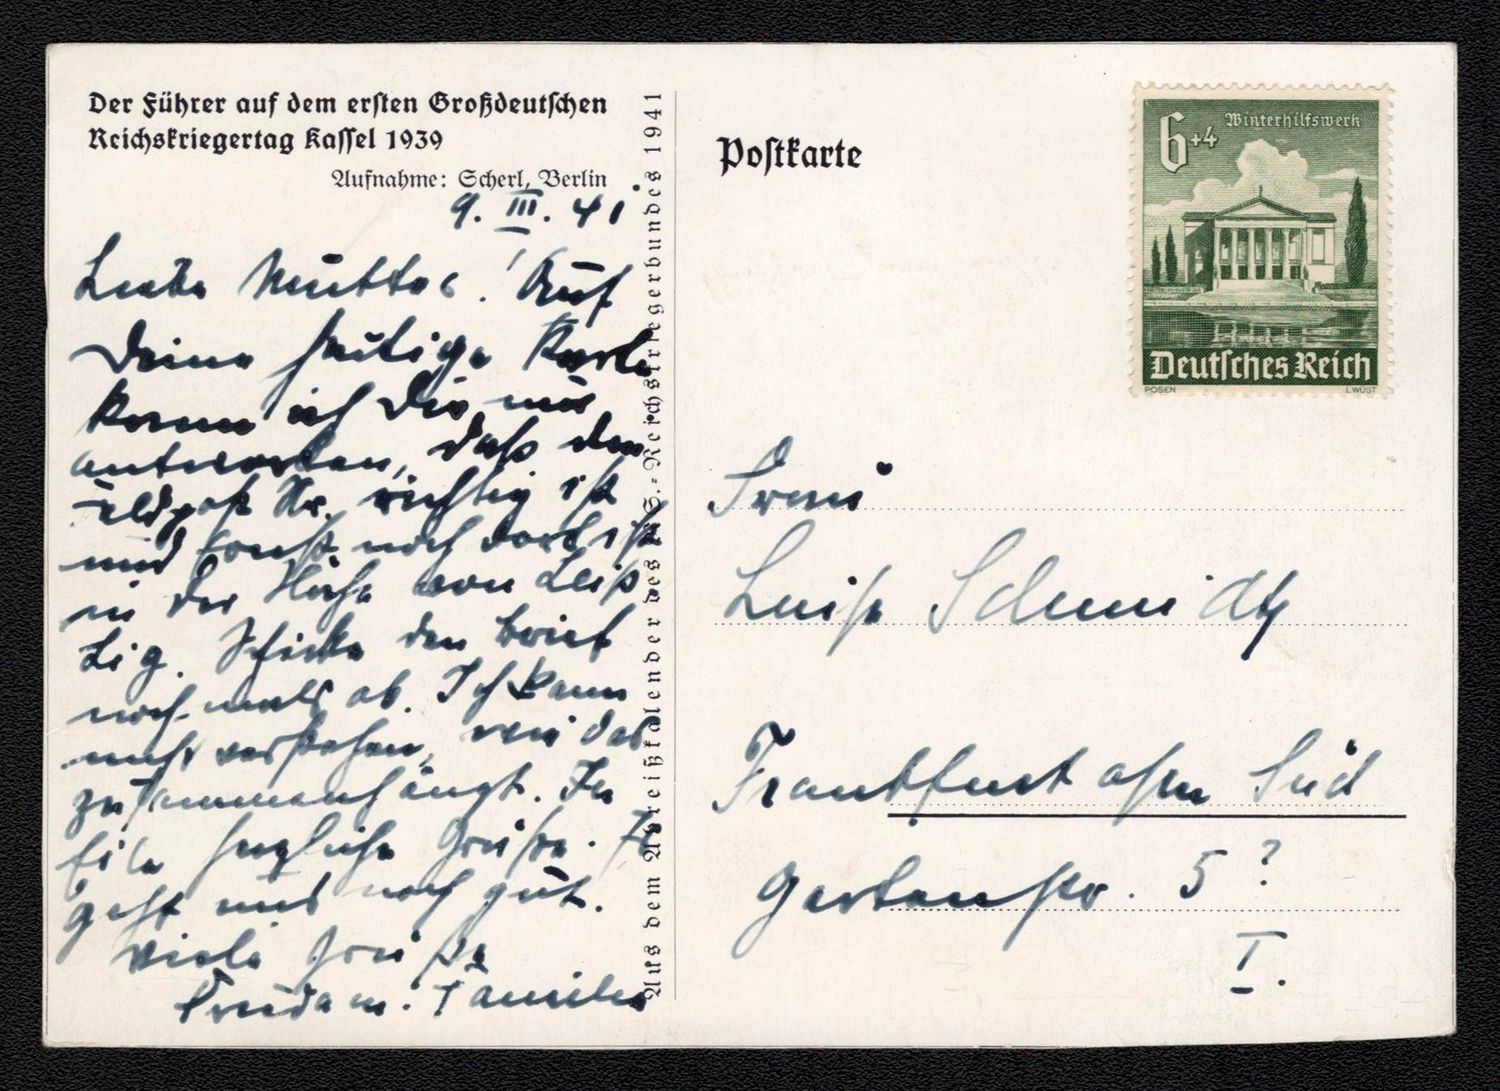 Der Führer auf dem ersten Großdeutschen
Reichskriegertag Kassel 1939
Aufnahme: Scherl, Berlin
9. III. 41
Liebe Mutter! Auf
Deine heutige Karte
kann ich Dir nur
antworten, daß die
Feldpost Nr. richtig ist
und noch dort ist
in der Nähe von Leip
zig. Schicke den Brief
noch mals ab. Ich kann
nicht verstehen, wie das
zusammenhängt. In
Eile herzliche Grüße. Es
geht uns noch gut.
Viele Grüße
Familie
Aus dem Abreißkalender des NS.-Reichskriegerbundes 1941
Postkarte
6+4 Winterhilfswerk
Deutsches Reich
POSEN L.WÜST
Frau
Luise Schmidt
Frankfurt a/M Süd
Gartenstr. 5 ?
I.